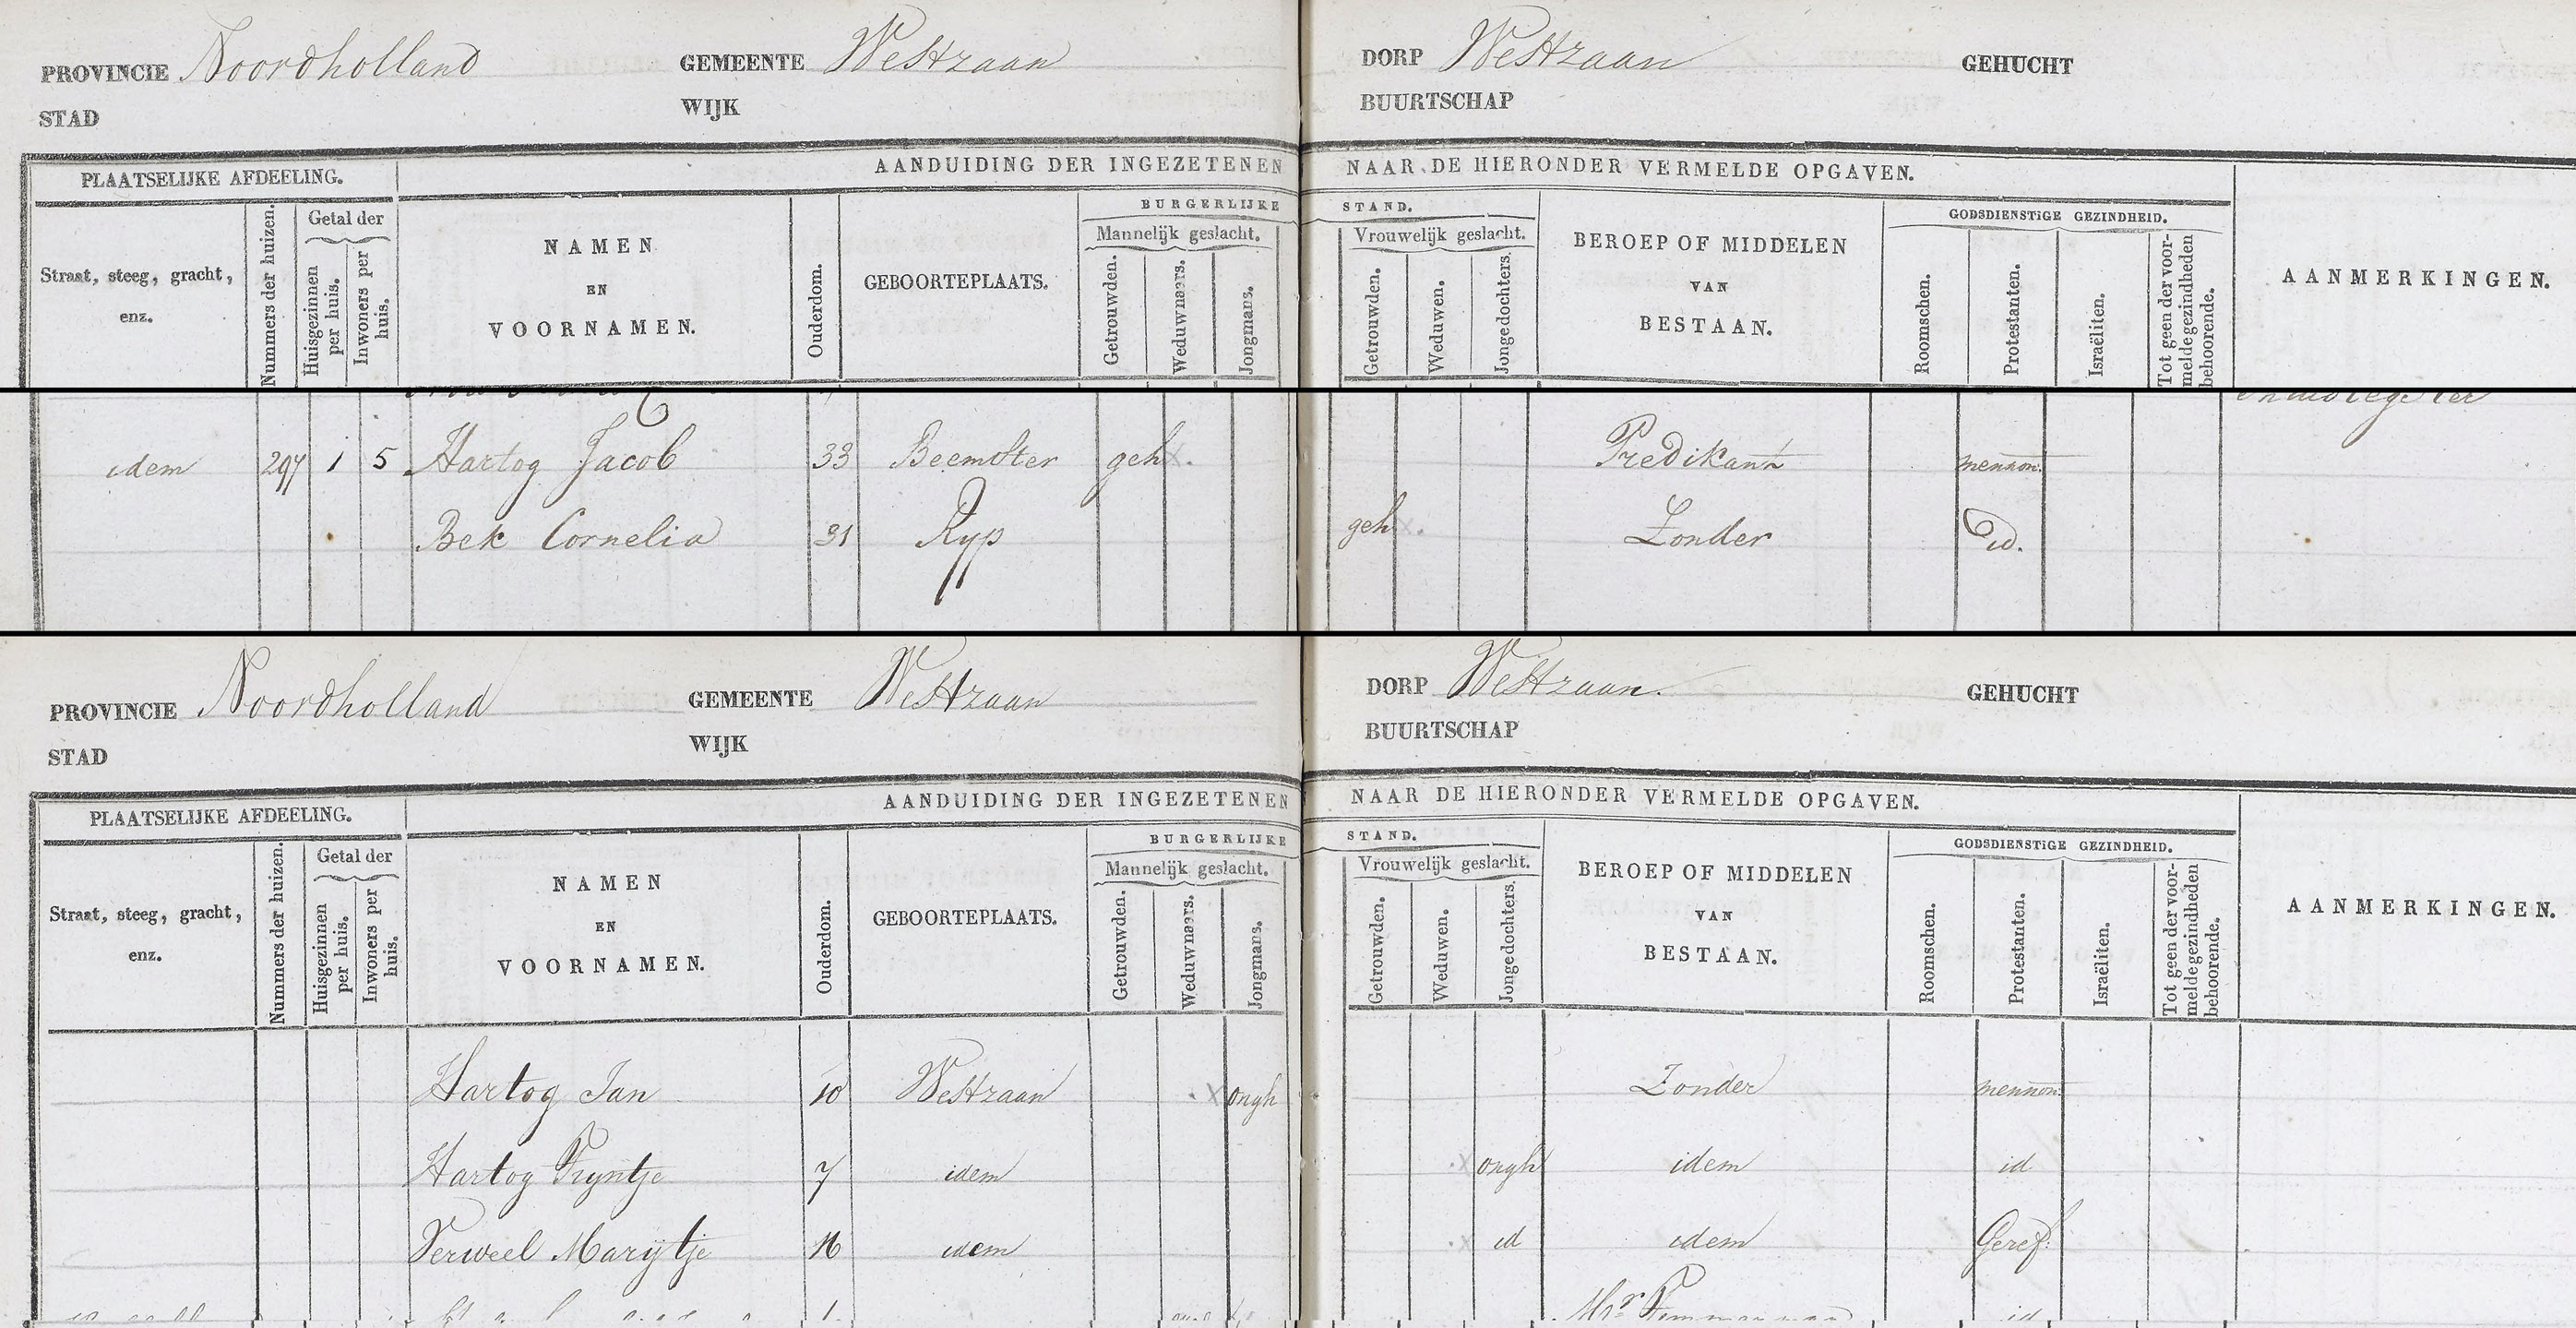 PROVINCIE Noordholland GEMEENTE Westzaan DORP Westzaan GEHUCHT
STAD WIJK BUURTSCHAP
AANDUIDING DER INGEZETENEN NAAR DE HIERONDER VERMELDE OPGAVEN.
PLAATSELIJKE AFDEELING.
BURGERLIJKE STAND.
Straat, steeg, gracht, enz.
Nummers der huizen.
Getal der
Huisgezinnen per huis.
Inwoners per huis.
NAMEN
EN
VOORNAMEN.
Ouderdom.
GEBOORTEPLAATS.
Mannelijk geslacht.
Getrouwden.
Weduwnaars.
Jongmans.
Vrouwelijk geslacht.
Getrouwden.
Weduwen.
Jongedochters.
BEROEP OF MIDDELEN
VAN
BESTAAN.
GODSDIENSTIGE GEZINDHEID.
Roomschen.
Protestanten.
Israëliten.
Tot geen der voor-
melde gezindheden
behoorende.
AANMERKINGEN.
idem 297 1 5 Hartog Jacob 33 Beemster geh x. Predikant mennon.
Bek Cornelia 31 Ryp geh x. Zonder id.
PROVINCIE Noordholland GEMEENTE Westzaan DORP Westzaan. GEHUCHT
STAD WIJK BUURTSCHAP
AANDUIDING DER INGEZETENEN NAAR DE HIERONDER VERMELDE OPGAVEN.
PLAATSELIJKE AFDEELING.
BURGERLIJKE STAND.
Straat, steeg, gracht, enz.
Nummers der huizen.
Getal der
Huisgezinnen per huis.
Inwoners per huis.
NAMEN
EN
VOORNAMEN.
Ouderdom.
GEBOORTEPLAATS.
Mannelijk geslacht.
Getrouwden.
Weduwnaars.
Jongmans.
Vrouwelijk geslacht.
Getrouwden.
Weduwen.
Jongedochters.
BEROEP OF MIDDELEN
VAN
BESTAAN.
GODSDIENSTIGE GEZINDHEID.
Roomschen.
Protestanten.
Israëliten.
Tot geen der voor-
melde gezindheden
behoorende.
AANMERKINGEN.
Hartog Jan 10 Westzaan x ongh Zonder mennon.
Hartog Tryntje 7 idem x ongh idem id
Verweel Marijtje 16 idem x id idem Geref:
Mr Timmerman id